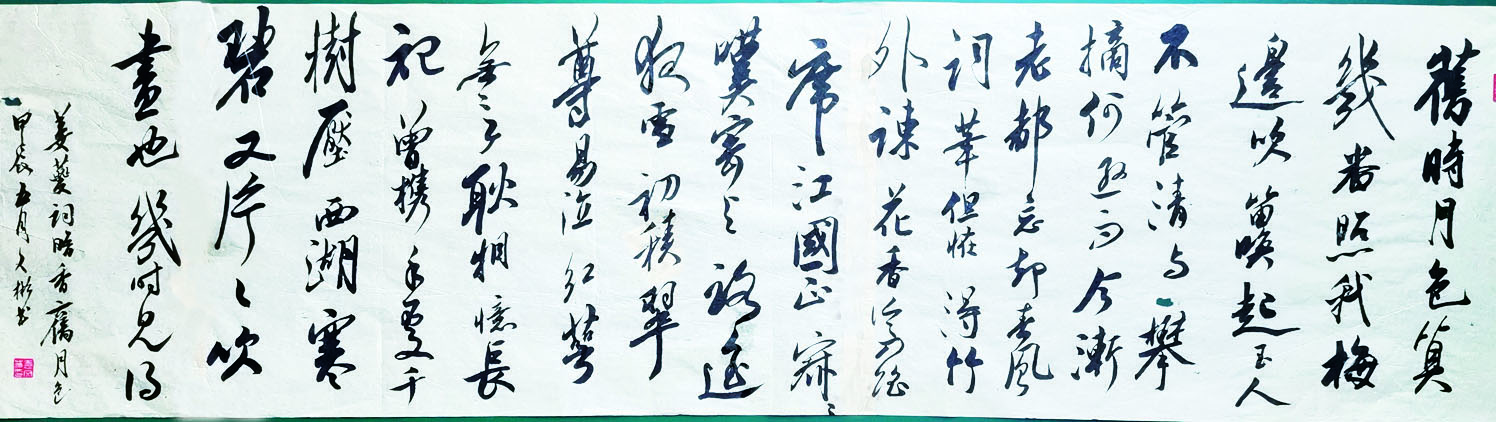 舊時月色算
幾番照我梅
邊吹笛喚起玉人
不管清与攀
摘何逊而今漸
老都忘却春風
詞筆但恠得竹
外疎花香冷入瑶
席江國正寂〻
嘆寄与路遥
夜雪初積翠
尊易泣紅萼
無言耿相憶長
記曾攜手處千
樹壓西湖寒
碧又片〻吹
盡也幾时見得
姜夔詞暗香舊月色
甲辰五月大彬书